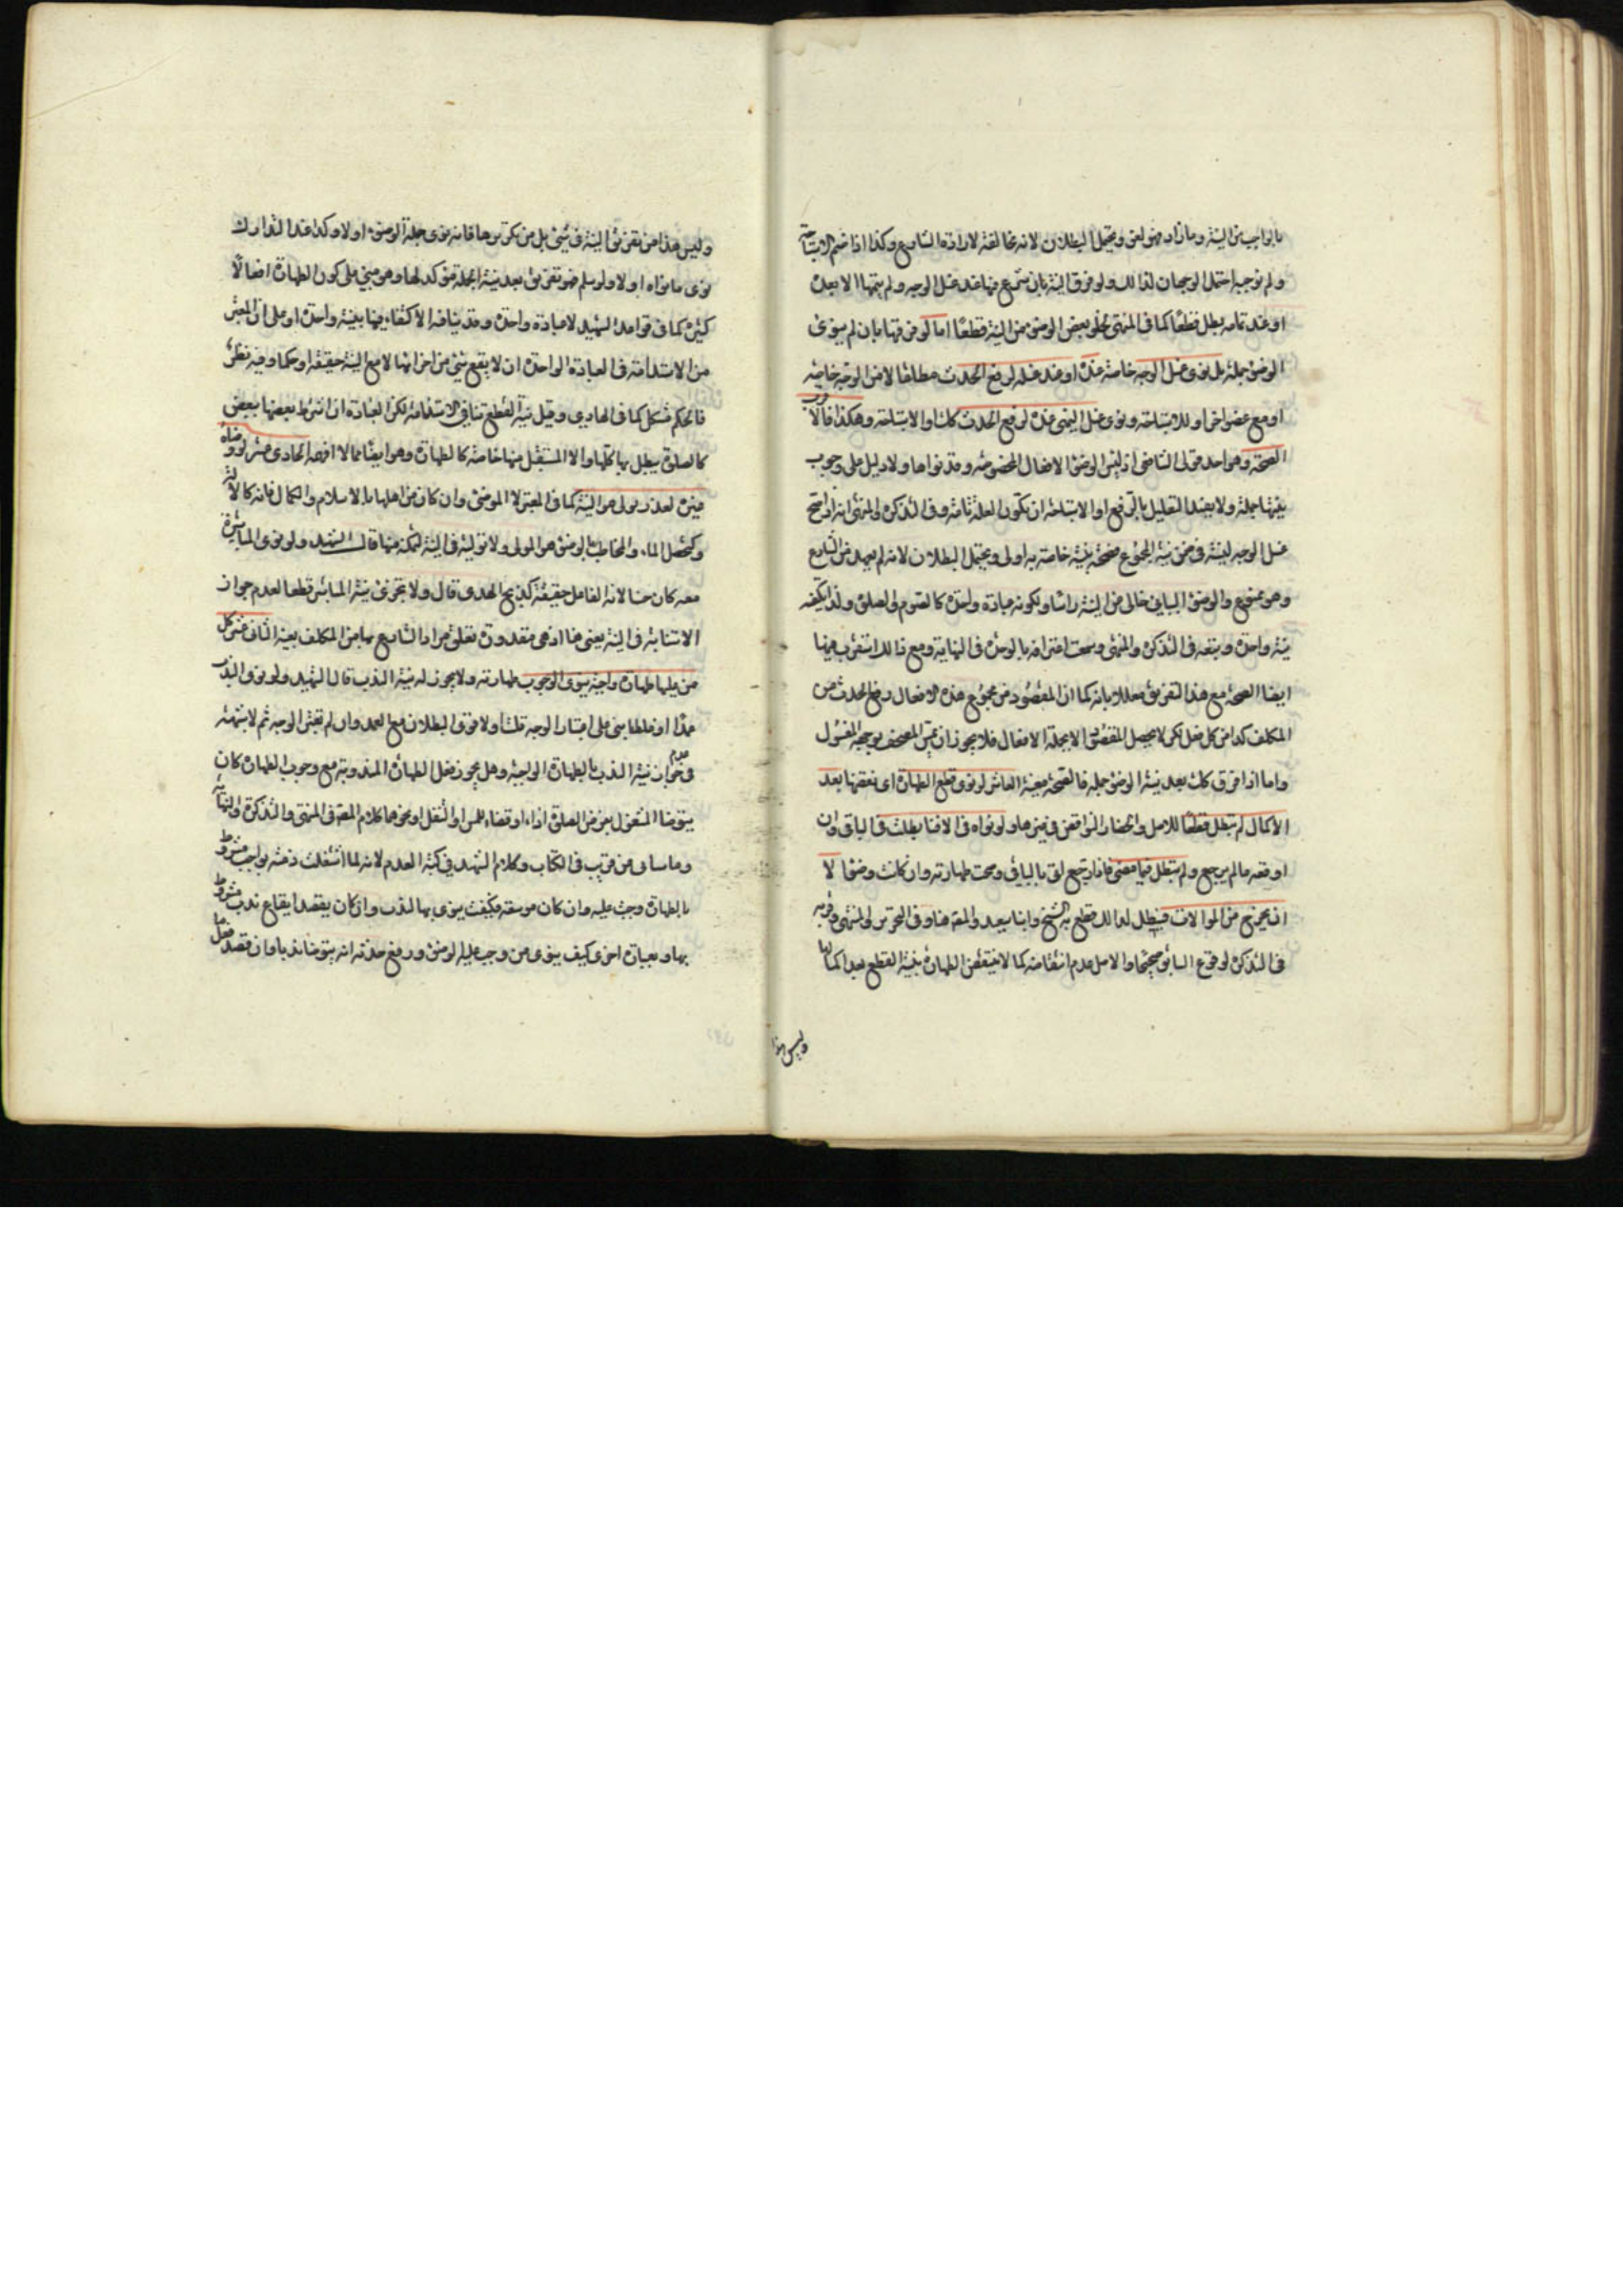 بالواجب من النية وما زاد فهو لغو ويحتمل البطلان لانه مخالفة لارادة الشارع وكذا اذا ضم الاستباحة
ولم نوجبه احتمل الوجهان لذلك ولو فرق النية بان شرع فيها عند غسل الوجه ولم يتمها الا بعده
او عند تمامه بطل قطعا كما في المنتهى لخلو بعض الوضوء من النية قطعا اما لو فرقها بان لم ينوى
الوضوء جملة بل نوى غسل الوجه خاصة عنده او عند غسله لرفع الحدث مطلقا لا من الوجه خاصة
او مع عضو اخر او للاستباحة ونوى غسل اليمنى عنده لرفع الحدث كك او الاستباحة وهكذا فالاقرب
الصحة وهو احد قولي الشافعي اذ ليس الوضوء الا الافعال المخصوصة وقد نواها ولا دليل على وجوب
نيتها جملة ولا يفيد التعليل بالرفع او الاستباحة ان تكون العلة تامة وفي التذكرة والمنتهى انه اذا صح
غسل الوجه لنية في ضمن نية المجموع فصحته بنية خاصة به اولى ويحتمل البطلان لانه لم يعهد من الشارع
وهو ممنوع والوضوء البياني خالى من النية راسا ولكونه عبادة واحدة كالصوم والصلوة ولذا يكفيه
نية واحدة ويتعه في التذكرة والمنتهى وسمعت اعترافه بالوحدة في النهاية ومع ذلك استقرب فيها
ايضا الصحة مع هذا التفريق معللا بانه كما ان المقصود من مجموع هذه الافعال رفع الحدث من
المكلف كذا من كل فعل لكن لا يحصل المقصود الا بجملة الافعال فلا يجوز ان يمس المصحف بوجهه المغسول
واما اذا فرق كك بعد نية الوضوء جملة فالصحة معينة العاشر لو نوى قطع الطهارة اى نقضها بعد
الاكمال لم تبطل قطعا للاصل وانحصار النواقض في غيرها ولو نواه في الاثنا بطلت في الباقي وان
اوقعه ما لم يرجع ولم تبطل فيما مضى فاذا رجع اتى بالباقي وصحت طهارته وان كانت وضوءا لا
ان يخرج من الموالات فتبطل لذلك قطع به الشيخ وابنا سعيد والمصنف هنا وفي التحرير والمنتهى وقربه
في التذكرة لوقوع السابق صحيحا والاصل عدم انتقاضه كما لا تنتقض الطهارة بنية القطع بعد اكمالها
وليس هذا
وليس هذا من تفريق النية في شيء بل من تكريرها فانه نوى جملة الوضوء اولا وكذا عند التدارك
نوى ما نواه اولا ولو سلم فهو تفريق بعد نية الجملة مؤكد لها وهو مبني على كون الطهارة افعالا
كثيرة كما في قواعد الشهيد لا عبادة واحدة وقد ينافيه الاكتفاء فيها بنية واحدة او على ان المعتبر
من الاستدامة في العبادة الواحدة ان لا يقع شيء من اجزائها الا مع النية حقيقة او حكما وفيه نظر
فالحكم مشكل كما في الهادي وقيل نية القطع تنافي الاستدامة لكن العبادة ان اشترط بعضها ببعض
كالصلوة يبطل بها كلها والا المستقبل منها خاصة كالطهارة وهو ايضا مما لا افهمه الحادى عشر لو وضاه
غيره لعذر تولى هو النية كما في المعتبر لا الموضئ وان كان من اهلها بالاسلام والكمال فانه كالالة
وكمحصل الماء والمخاطب بالوضوء هو المولى ولا تولية في النية لتمكنه منها قال الشهيد ولو نوى المباشرة
معه كان حسنا لانه الفاعل حقيقة كذبح الهدى قال ولا تجزى نية المباشر قطعا لعدم جواز
الاستنابة في النية يعنى فيما اذ هى مقدورة تعلق مراد الشارع بها من المكلف بعينه الثاني عشر كل
من عليه طهارة واجبة ينوى الوجوب بطهارته ولا يجوز له نية الندب قال الشهيد ولو نوى الندب
عمدا او غلطا بنى على اعتبار الوجه قلت اولا فقوى البطلان مع العمد وان لم نعتبر الوجه ثم لا شبهة
في عدم جواز نية الندب بالطهارة الواجبة وهل يجوز فعل الطهارة المندوبة مع وجوب الطهارة كان
يتوضا المشغول بفرض الصلوة اداء او قضاء للمس او النقل او نحوهما كلام المصنف في المنتهى والتذكرة والنهاية
وما ساتى من قريب في الكتاب وكلام الشهيد في كتبه العدم لانه لما اشتغلت ذمته بواجب مشروط
بالطهارة وجبت عليه وان كان موسعه فكيف ينوى بها الندب وان كان يقصد ايقاع ندب مشروط
بها وبعبارة اخرى كيف ينوى من وجب عليه الوضوء ورفع حدثه انه يتوضا ندبا وان قصد فعل ما